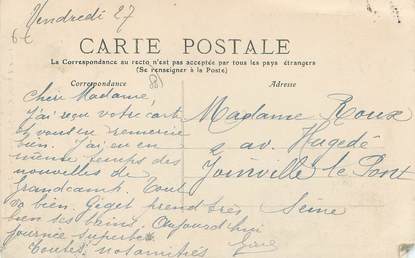 Vendredi 27
6€
CARTE POSTALE
La Correspondance au recto n'est pas acceptée par tous les pays étrangers
(Se renseigner à la Poste)
Correspondance
Adresse
Chère Madame,
J'ai reçu votre carte
& vous en remercie
bien. J'ai eu en
même temps des
nouvelles de
Grandcamp. Tout
va bien. Giget prend très
bien ses bains. Aujourd'hui
journée superbe.
Toutes nos amitiés
Madame Roux
2 av. Hugedé
Joinville le Pont
Seine